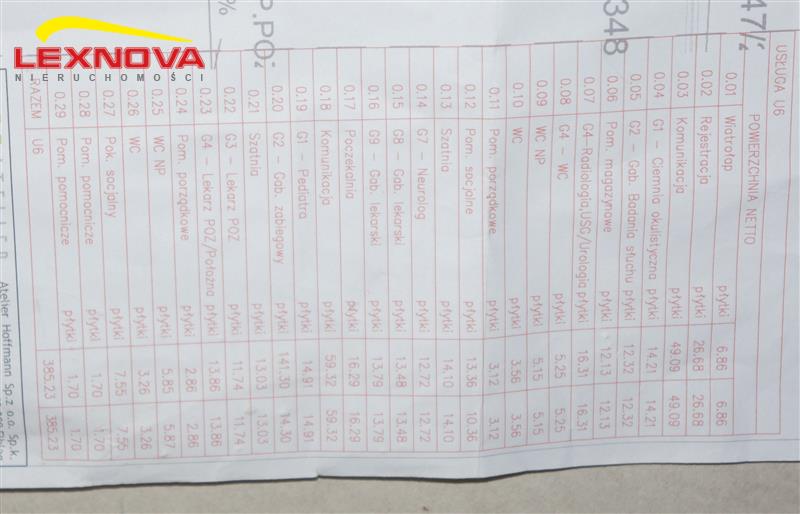 LEXNOVA
NIERUCHOMOŚCI
USŁUGA U6
POWIERZCHNIA NETTO
0.01 Wiatrołap płytki 6.86 6.86
0.02 Rejestracja płytki 26.68 26.68
0.03 Komunikacja płytki 49.09 49.09
0.04 G1 – Ciemnia okulistyczna płytki 14.21 14.21
0.05 G2 – Gab. Badania słuchu płytki 12.32 12.32
0.06 Pom. magazynowe płytki 12.13 12.13
0.07 G4-Radiologia,USG/Urologia płytki 16.31 16.31
0.08 G4 – WC płytki 5.25 5.25
0.09 WC NP płytki 5.15 5.15
0.10 WC płytki 3.56 3.56
0.11 Pom. porządkowe płytki 3.12 3.12
0.12 Pom. socjalne płytki 13.36 10.36
0.13 Szatnia płytki 14.10 14.10
0.14 G7 – Neurolog płytki 12.72 12.72
0.15 G8 – Gab. lekarski płytki 13.48 13.48
0.16 G9 – Gab. lekarski płytki 13.79 13.79
0.17 Poczekalnia płytki 16.29 16.29
0.18 Komunikacja płytki 59.32 59.32
0.19 G1 – Pediatra płytki 14.91 14.91
0.20 G2 – Gab. zabiegowy płytki 141.30 14.30
0.21 Szatnia płytki 13.03 13.03
0.22 G3 – Lekarz POZ płytki 11.74 11.74
0.23 G4 – Lekarz POZ/Położna płytki 13.86 13.86
0.24 Pom. porządkowe płytki 2.86 2.86
0.25 WC NP płytki 5.85 5.87
0.26 WC płytki 3.26 3.26
0.27 Pok. socjalny płytki 7.55 7.55
0.28 Pom. pomocnicze płytki 1.70 1.70
0.29 Pom. pomocnicze płytki 1.70 1.70
RAZEM U6 385.23 385.23
Atelier Hoffmann Sp.z o.o. Sp.k.
348